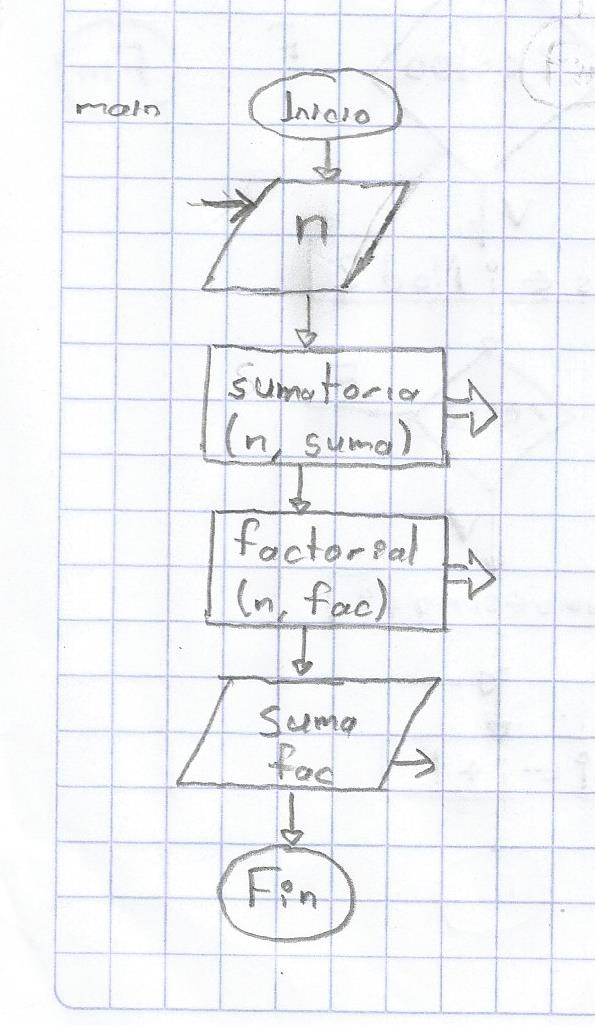 main
Inicio
n
sumatoria
(n, suma)
factorial
(n, fac)
suma
fac
Fin